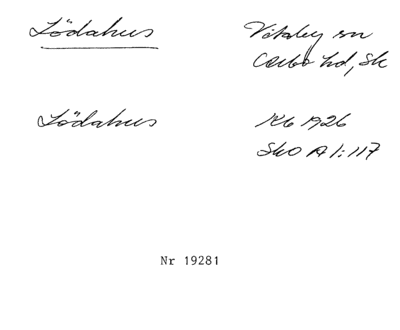 Lödahus Vitaby sn
Albo hd, Sk
Lödahus Kb 1926
SkO A 1:117
Nr 19281